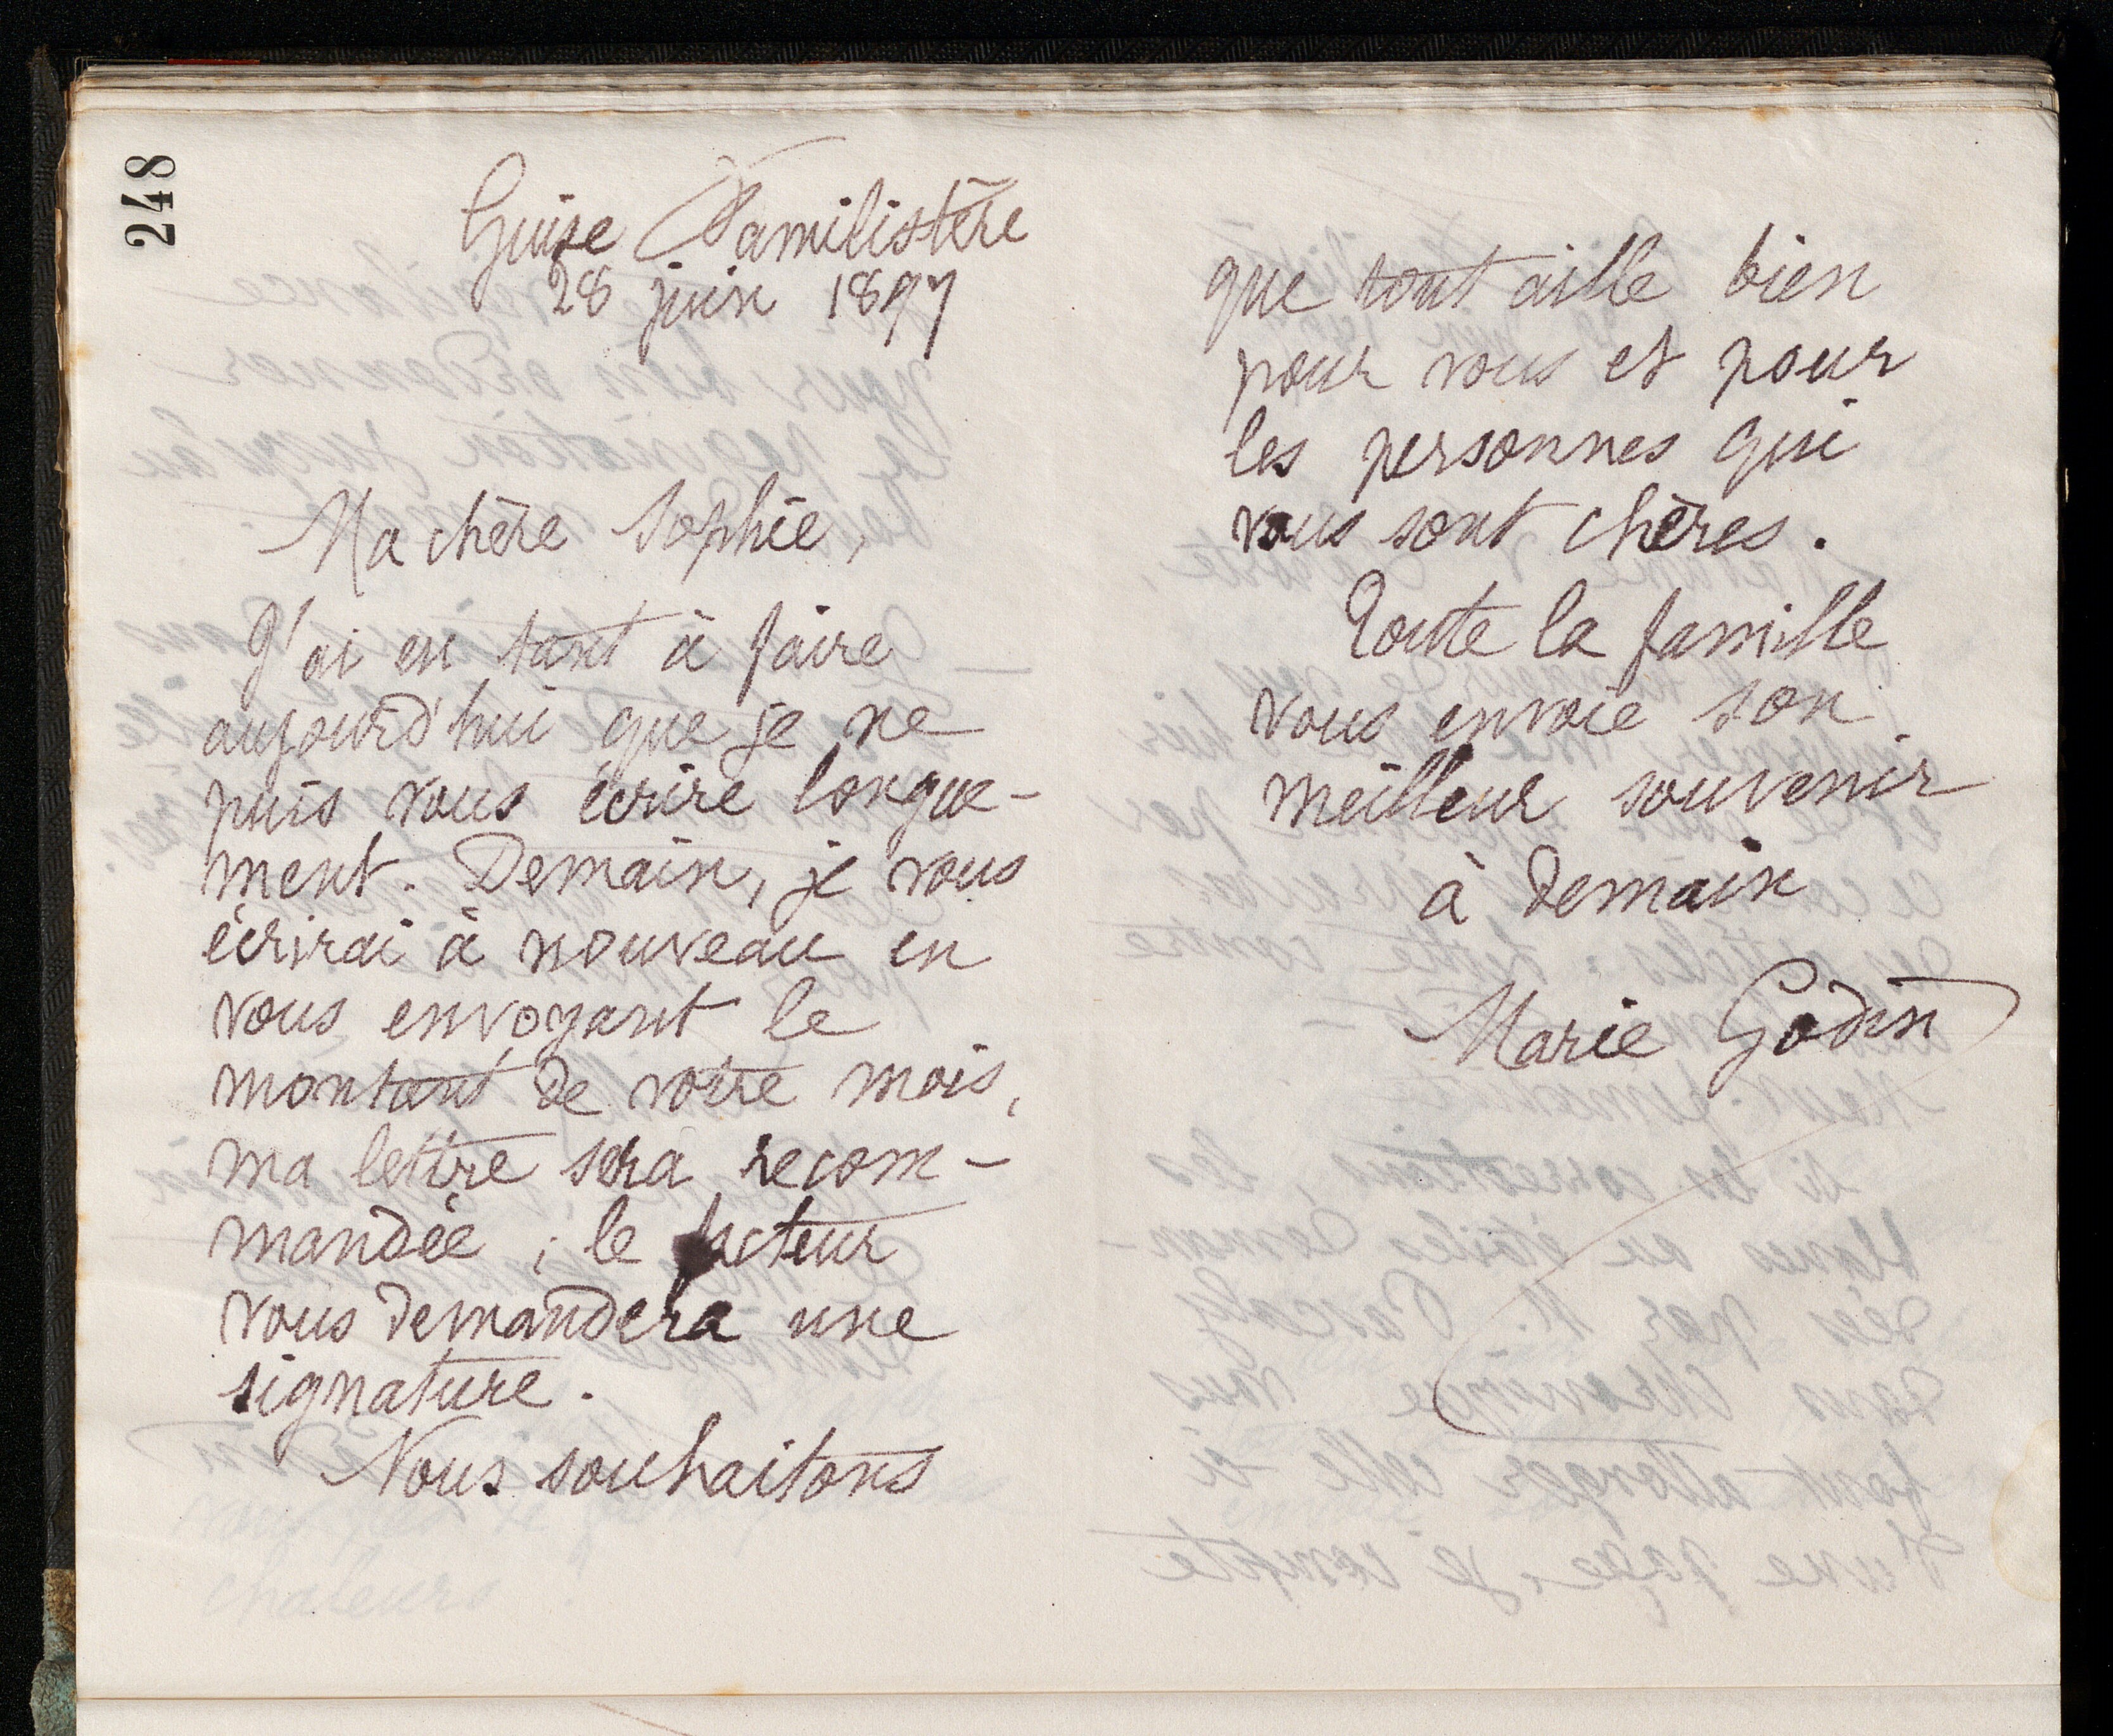 248
Guise Familistère
28 juin 1897
Ma chère Sophie,
J'ai eu tant à faire
aujourd'hui que je ne
puis vous écrire longue-
ment. Demain, je vous
écrirai à nouveau en
vous envoyant le
montant de votre mois,
ma lettre sera recom-
mandée ; le facteur
vous demandera une
signature.
Nous souhaitons
que tout aille bien
pour vous et pour
les personnes qui
vous sont chères.
Toute la famille
vous envoie son
meilleur souvenir
à demain
Marie Godin